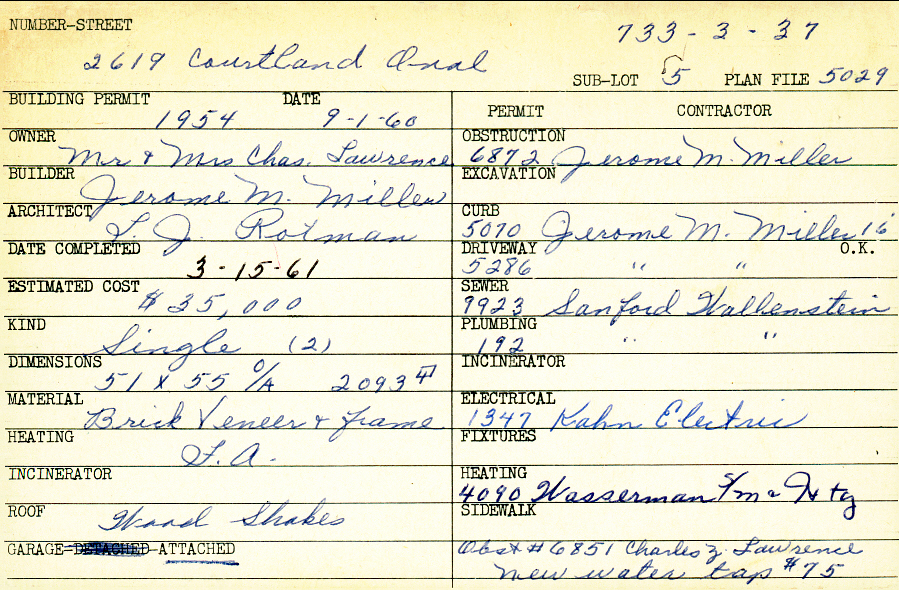 NUMBER-STREET
733-3-37
2619 Courtland Oval
SUB-LOT 5 PLAN FILE 5029
BUILDING PERMIT DATE
1954 9-1-60
OWNER
Mr & Mrs Chas. Lawrence
BUILDER
Jerome M. Miller
ARCHITECT
L. J. Rotman
DATE COMPLETED
3-15-61
ESTIMATED COST
$35,000
KIND
Single (2)
DIMENSIONS
51 x 55 O/A 2093
MATERIAL
Brick Veneer & frame
HEATING
F.A.
INCINERATOR
ROOF
Wood Shakes
GARAGE-DETACHED-ATTACHED
PERMIT CONTRACTOR
OBSTRUCTION
6872 Jerome M. Miller
EXCAVATION
CURB
5070 Jerome M. Miller 16
DRIVEWAY O.K.
5286 " "
SEWER
9923 Sanford Walkenstein
PLUMBING
192 " "
INCINERATOR
ELECTRICAL
1347 Kahn Electric
FIXTURES
HEATING
4090 Wasserman S/m & Htg
SIDEWALK
Obst #6851 Charles Z. Lawrence
new water tap $75